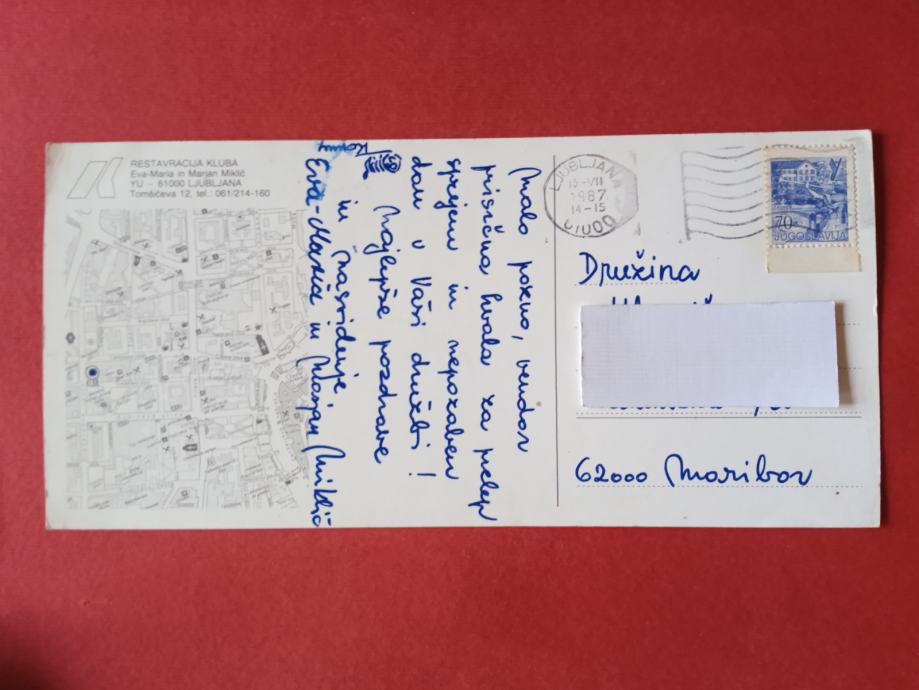 RESTAVRACIJA KLUBA
Eva-Maria in Marjan Miklič
YU - 61000 LJUBLJANA
Tomšičeva 12, tel.: 061/214-160
Malo pozno, vendar
prisrčna hvala za prelep
sprejem in nepozaben
dan v Vaši družbi!
Najlepše pozdrave
in nasvidenje
Eva-Maria in Marjan Miklič
LJUBLJANA
15-VII
1987
14-15
61000
70
JUGOSLAVIJA
Družina
62000 Maribor